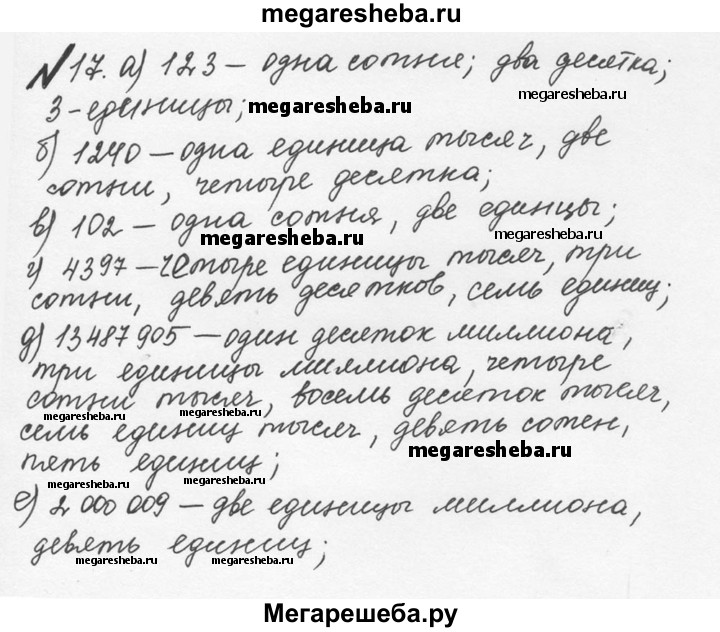 megaresheba.ru
№17. а) 123 – одна сотня; два десятка;
megaresheba.ru
3 - единицы; megaresheba.ru
б) 1240 – одна единица тысяч, две
сотни, четыре десятка;
в) 102 – одна сотня, две единцы;
megaresheba.ru megaresheba.ru
г) 4397 – четыре единицы тысяч, три
сотни, девять десятков, семь единиц;
д) 13 487 905 – один десяток миллиона,
три единицы миллиона, четыре
сотни тысяч, восемь десяток тысяч,
megaresheba.ru megaresheba.ru
семь единиц тысяч, девять сотен,
megaresheba.ru
пять единиц;
megaresheba.ru megaresheba.ru
е) 2 000 009 – две единицы миллиона,
девять единиц;
megaresheba.ru megaresheba.ru
Мегарешеба.ру